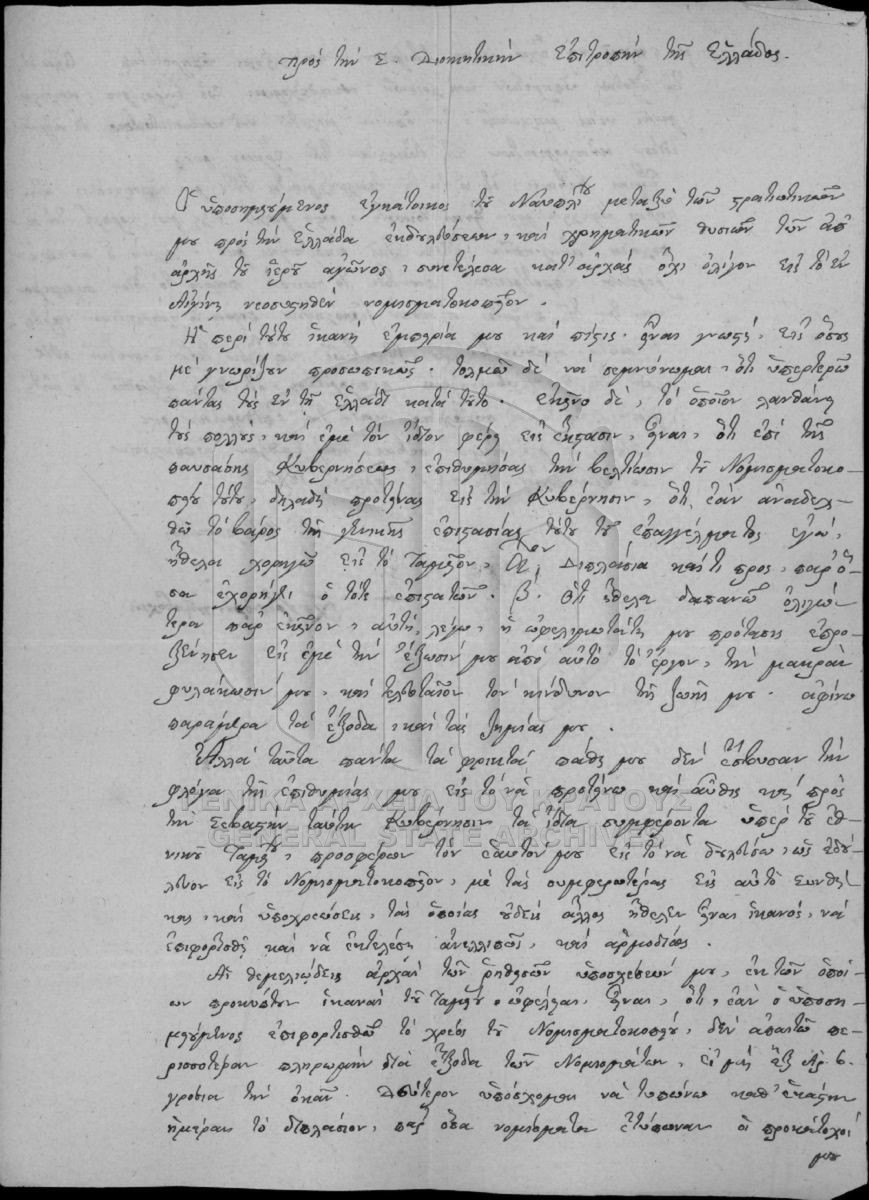 Πρός τήν Σ. Διοικητικήν Επιτροπήν τῆς Ἑλλάδος.
Ὁ ὑποσημειούμενος ἐγκάτοικος τοῦ Ναυπλίου μεταξύ τῶν στρατιωτικῶν
μου πρός τήν Ἑλλάδα ἐκδουλεύσεων, καί χρηματικῶν θυσιῶν τῶν ἀπ'
ἀρχῆς τοῦ ἱεροῦ ἀγῶνος, συνετέλεσα κατ' ἀρχάς ὄχι ὀλίγον εἰς τό ἐν
Αἰγίνῃ νεοσυστηθέν νομισματοκοπεῖον.
Ἡ περί τούτου ἱκανή ἐμπειρία μου καί πίστις, εἶναι γνωστή, εἰς ὅσους
μέ γνωρίζουν προσωπικῶς. τολμῶ δέ νά σεμνύνωμαι, ὅτι ὑπερτερῶ
πάντας τούς ἐν τῇ Ἑλλάδι κατά τοῦτο. Ἐκεῖνο δέ, τό ὁποῖον λανθάνει
τούς πολλούς, καί ἐμέ τόν ἴδιον φέρει εἰς ἔκστασιν, εἶναι, ὅτι ἐπί τῆς
παυσάσης Κυβερνήσεως, ἐπιθυμήσας τήν βελτίωσιν τοῦ Νομισματοκο-
πείου τούτου, δηλαδή προτείνας εἰς τήν Κυβέρνησιν, ὅτι ἐάν ἀναδεχ-
θῶ τό βάρος τῆς γενικῆς ἐπιστασίας τούτου τοῦ ἐπαγγέλματος ἐγώ,
ἤθελα χορηγῶ εἰς τό Ταμεῖον, Αον Διπλάσια καί τι προς, παρ' ὅ-
σα ἐχορήγει ὁ τότε ἐπιστατῶν. β. ὅτι ἤθελα δαπανῶ ὀλιγώ-
τερα παρ' ἐκεῖνον, αὐτή, λέγω, ἡ ὠφελιμωτάτη μου πρότασις ἐπρο-
ξένησεν εἰς ἐμέ τήν ἔξωσίν μου ἀπό αὐτό τό ἔργον, τήν μακράν
φυλάκωσίν μου, καί τελευταῖον τόν κίνδυνον τῆς ζωῆς μου. ἀφίνω
παράμερα τά ἔξοδα, καί τάς ζημίας μου.
Ἀλλά ταῦτα πάντα τά φρικτά πάθη μου δέν ἔσβυσαν τήν
φλόγα τῆς ἐπιθυμίας μου εἰς τό νά προτείνω καί αὖθις καί πρός
τήν Σεβαστήν ταύτην Κυβέρνησιν τά ἴδια συμφέροντα ὑπέρ τοῦ ἐθ-
νικοῦ Ταμείου, προσφέρων τόν ἑαυτόν μου εἰς τό νά δουλεύσω, ὡς ἐδού-
λευον εἰς τό Νομισματοκοπεῖον, μέ τάς συμφερωτέρας εἰς αὐτό συνθή-
κας, καί ὑποχρεώσεις, τάς ὁποίας οὐδείς ἄλλος ἤθελεν εἶναι ἱκανός, νά
ἐπιφορτισθῇ καί νά ἐκτελέσῃ ἀνελλιπῶς, καί ἁρμοδίως.
Αἱ θεμελιώδεις ἀρχαί τῶν ῥηθεισῶν ὑποσχέσεών μου, ἐκ τῶν ὁποί-
ων προκύπτουν ἱκαναί τοῦ Ταμείου ὠφέλειαι, εἶναι, ὅτι, ἐάν ὁ ὑποση-
μειούμενος ἐπιφορτισθῶ τό χρέος τοῦ Νομισματοκοπείου, δέν ἀπαιτῶ πε-
ρισσοτέραν πληρωμήν διά ἔξοδα τῶν Νομισμάτων, εἰ μή ἕξ Αρ. 6.
γρόσια τήν ὀκᾶν. Δεύτερον ὑπόσχομαι νά τυπώνω καθ' ἑκάστην
ἡμέραν τό διπλάσιον, παρ' ὅσα νομίσματα ἐτύπωναν οἱ προκάτοχοί
μου
ΓΕΝΙΚΑ ΑΡΧΕΙΑ ΤΟΥ ΚΡΑΤΟΥΣ
GENERAL STATE ARCHIVES